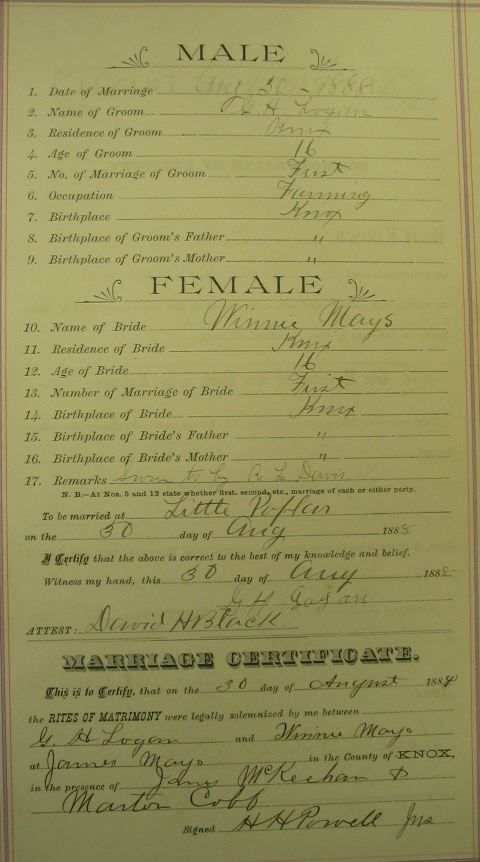 MALE
1. Date of Marriage Aug 30 - 1888
2. Name of Groom G H Logan
3. Residence of Groom Knox
4. Age of Groom 16
5. No. of Marriage of Groom First
6. Occupation Farming
7. Birthplace Knox
8. Birthplace of Groom's Father "
9. Birthplace of Groom's Mother "
FEMALE
10. Name of Bride Winnie Mays
11. Residence of Bride Knox
12. Age of Bride 16
13. Number of Marriage of Bride First
14. Birthplace of Bride Knox
15. Birthplace of Bride's Father "
16. Birthplace of Bride's Mother "
17. Remarks Sworn to by R L Davis
N. B.—At Nos. 5 and 13 state whether first, second, etc., marriage of each or either party.
To be married at Little Poplar
on the 30 day of Aug 1888
I Certify that the above is correct to the best of my knowledge and belief.
Witness my hand, this 30 day of Aug 1888
G H Logan
ATTEST: David H Black
MARRIAGE CERTIFICATE.
This is to Certify, that on the 30 day of August 1888
the RITES OF MATRIMONY were legally solemnized by me between
G. H Logan and Winnie Mays
at James Mays in the County of KNOX,
in the presence of James McKeehan &
Marton Cobb
Signed H H Powell